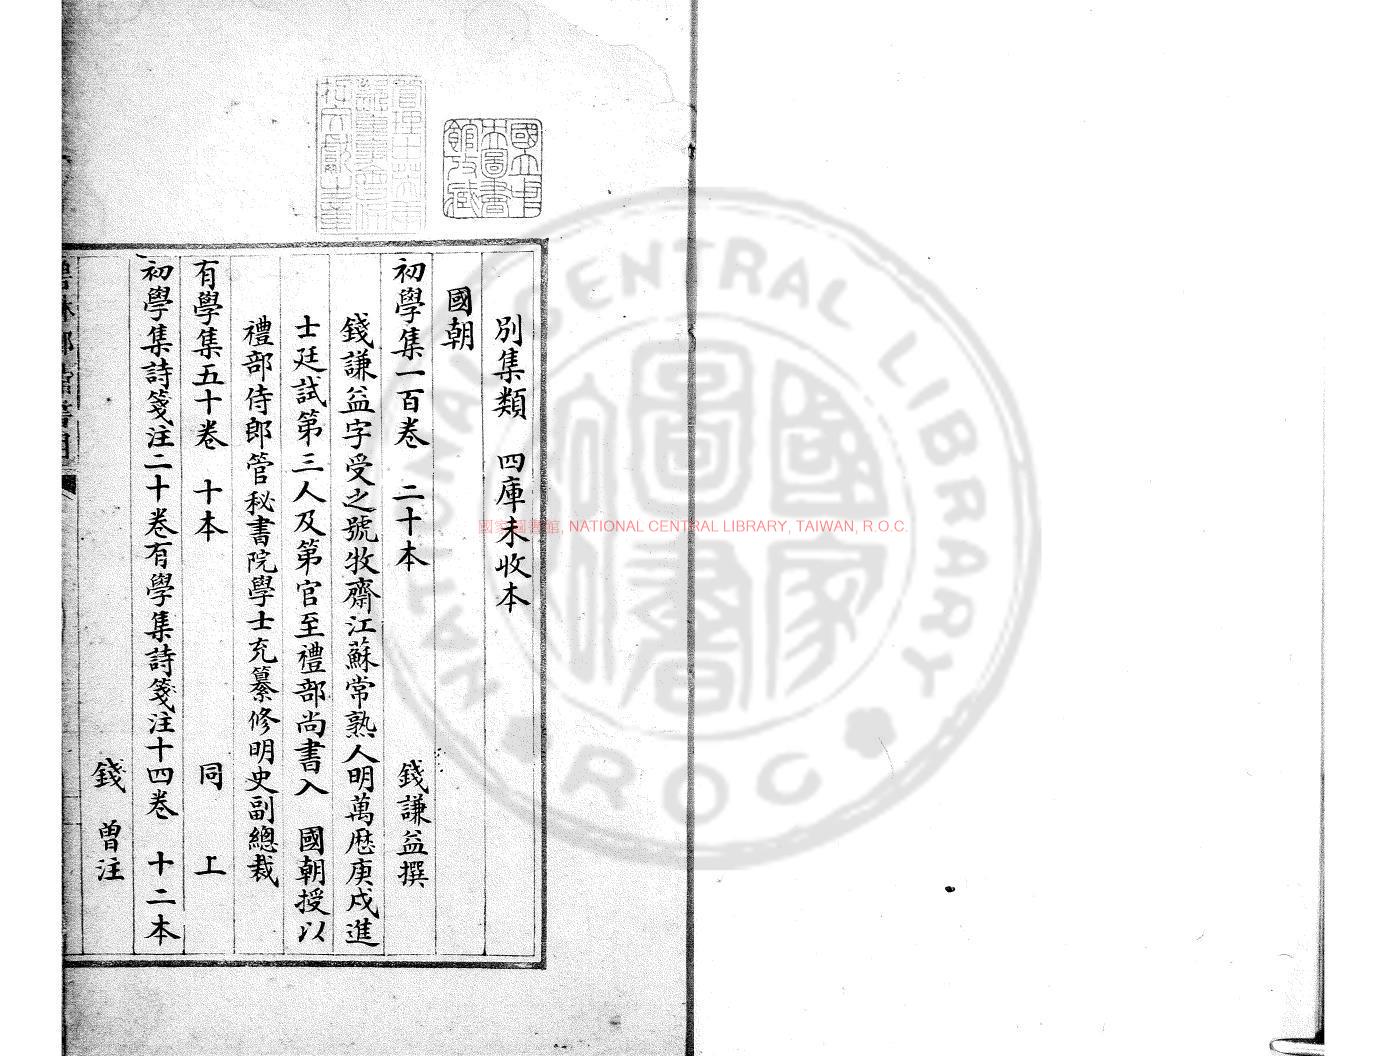 別集類　四庫未收本
國朝
初學集一百卷　二十本　錢謙益撰
錢謙益字受之號牧齋江蘇常熟人明萬厯庚戌進
士廷試第三人及第官至禮部尚書入　國朝授以
禮部侍郎管秘書院學士充纂修明史副總裁
有學集五十卷　十本　同上
初學集詩箋注二十卷有學集詩箋注十四卷　十二本
錢曾注
國立中央圖書館收藏
國家圖書館, NATIONAL CENTRAL LIBRARY, TAIWAN, R.O.C.
NATIONAL CENTRAL LIBRARY
R.O.C
國家圖書館